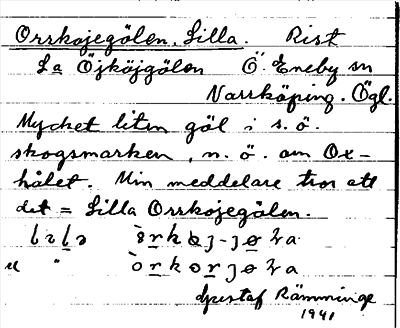 Orrskojegölen, Lilla. Rist
La Öjköjgölen Ö. Eneby sn
Norrköping. Ögl.
Mycket liten göl i s. ö.
skogsmarken, n. ö. om Ox-
hålet. Min meddelare tror att
det = Lilla Orrskojegölen.
Gustaf Rämminge
1941